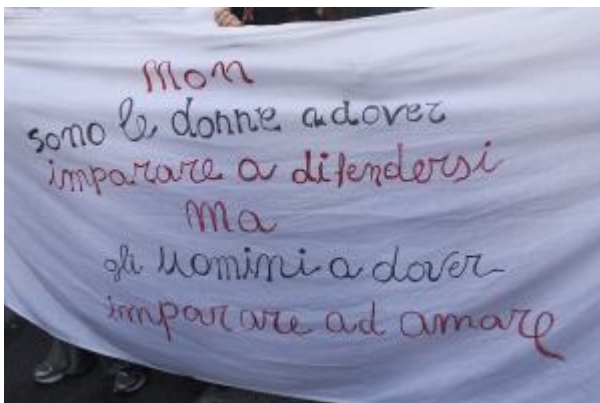 Non
sono le donne a dover
imparare a difendersi
Ma
gli uomini a dover
imparare ad amare